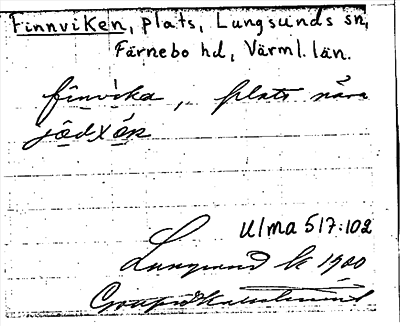 Finnviken, plats, Lungsunds sn,
Färnebo hd, Värml. län.
finvika, plats nära
Ulma 517:102
Lungsund k 1900